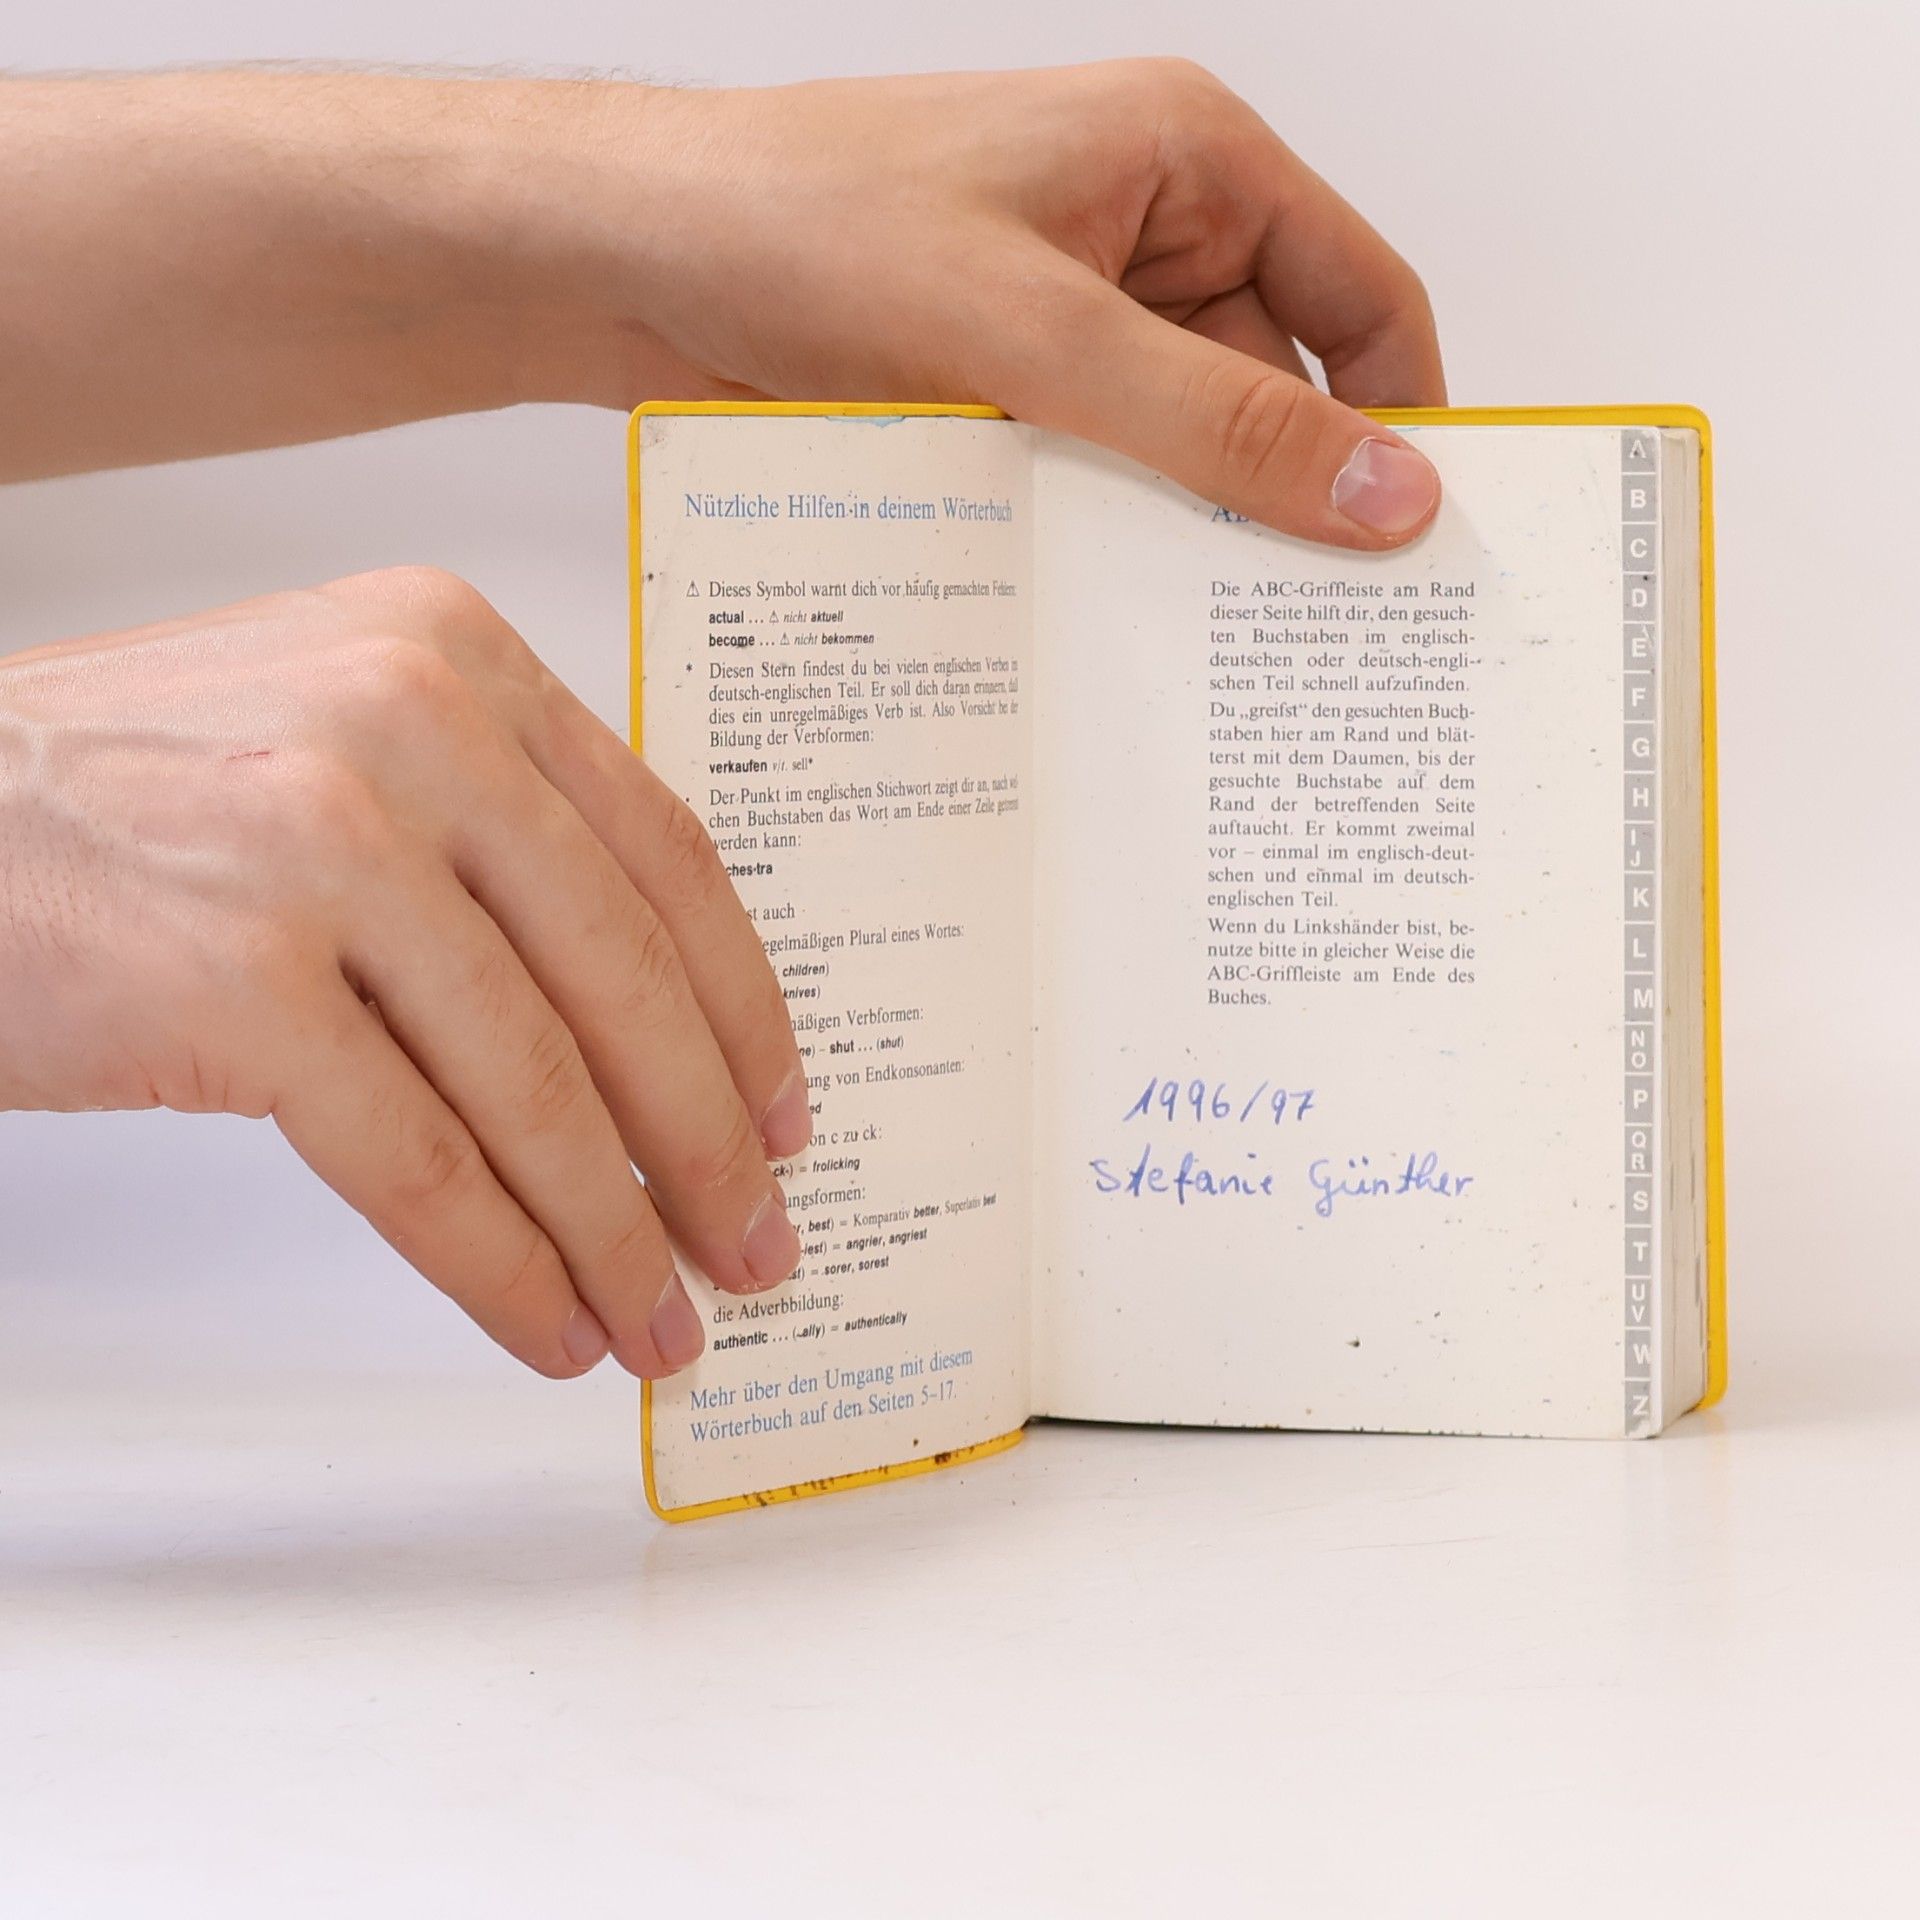 Nützliche Hilfen in deinem Wörterbuch
⚠ Dieses Symbol warnt dich vor häufig gemachten Fehlern:
actual ... ⚠ nicht aktuell
become ... ⚠ nicht bekommen
* Diesen Stern findest du bei vielen englischen Verben im
deutsch-englischen Teil. Er soll dich daran erinnern, daß
dies ein unregelmäßiges Verb ist. Also Vorsicht bei der
Bildung der Verbformen:
verkaufen v/t. sell*
· Der Punkt im englischen Stichwort zeigt dir an, nach wel-
chen Buchstaben das Wort am Ende einer Zeile getrennt
werden kann:
ches·tra
st auch
egelmäßigen Plural eines Wortes:
children)
knives)
mäßigen Verbformen:
ne) – shut ... (shut)
ung von Endkonsonanten:
ed
on c zu ck:
ck-) = frolicking
ungsformen:
r, best) = Komparativ better, Superlativ best
-iest) = angrier, angriest
st) = sorer, sorest
die Adverbbildung:
authentic ... (~ally) = authentically
Mehr über den Umgang mit diesem
Wörterbuch auf den Seiten 5–17.
Die ABC-Griffleiste am Rand
dieser Seite hilft dir, den gesuch-
ten Buchstaben im englisch-
deutschen oder deutsch-engli-
schen Teil schnell aufzufinden.
Du „greifst“ den gesuchten Buch-
staben hier am Rand und blät-
terst mit dem Daumen, bis der
gesuchte Buchstabe auf dem
Rand der betreffenden Seite
auftaucht. Er kommt zweimal
vor – einmal im englisch-deut-
schen und einmal im deutsch-
englischen Teil.
Wenn du Linkshänder bist, be-
nutze bitte in gleicher Weise die
ABC-Griffleiste am Ende des
Buches.
1996/97
Stefanie Günther
A
B
C
D
E
F
G
H
I
J
K
L
M
N
O
P
Q
R
S
T
U
V
W
Z